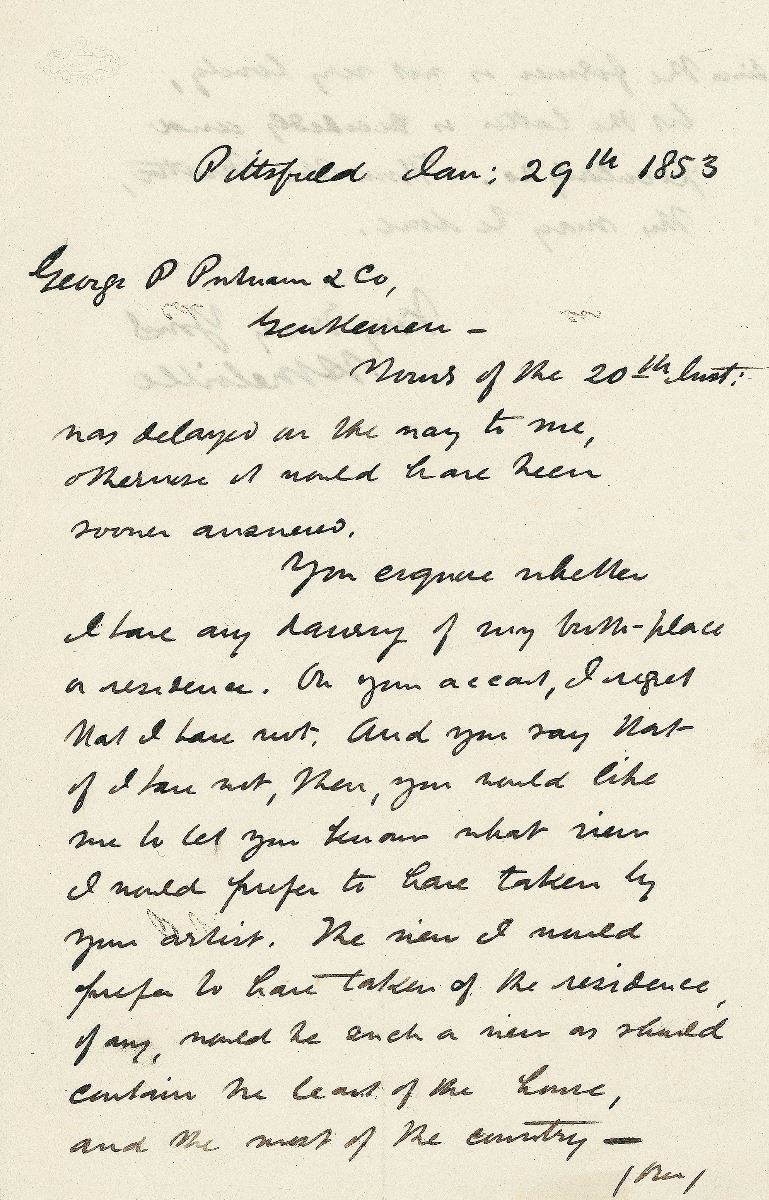 Pittsfield Jan: 29th 1853
George P Putnam & Co,
Gentlemen —
Yours of the 20th Inst:
was delayed on the way to me,
otherwise it would have been
sooner answered.
You enquire whether
I have any drawing of my birth-place
or residence. On your account, I regret
that I have not. And you say that
if I have not, then, you would like
me to let you know what view
I would prefer to have taken by
your artist. The view I would
prefer to have taken of the residence,
if any, would be such a view as should
contain the least of the house,
and the most of the country —
(Over)